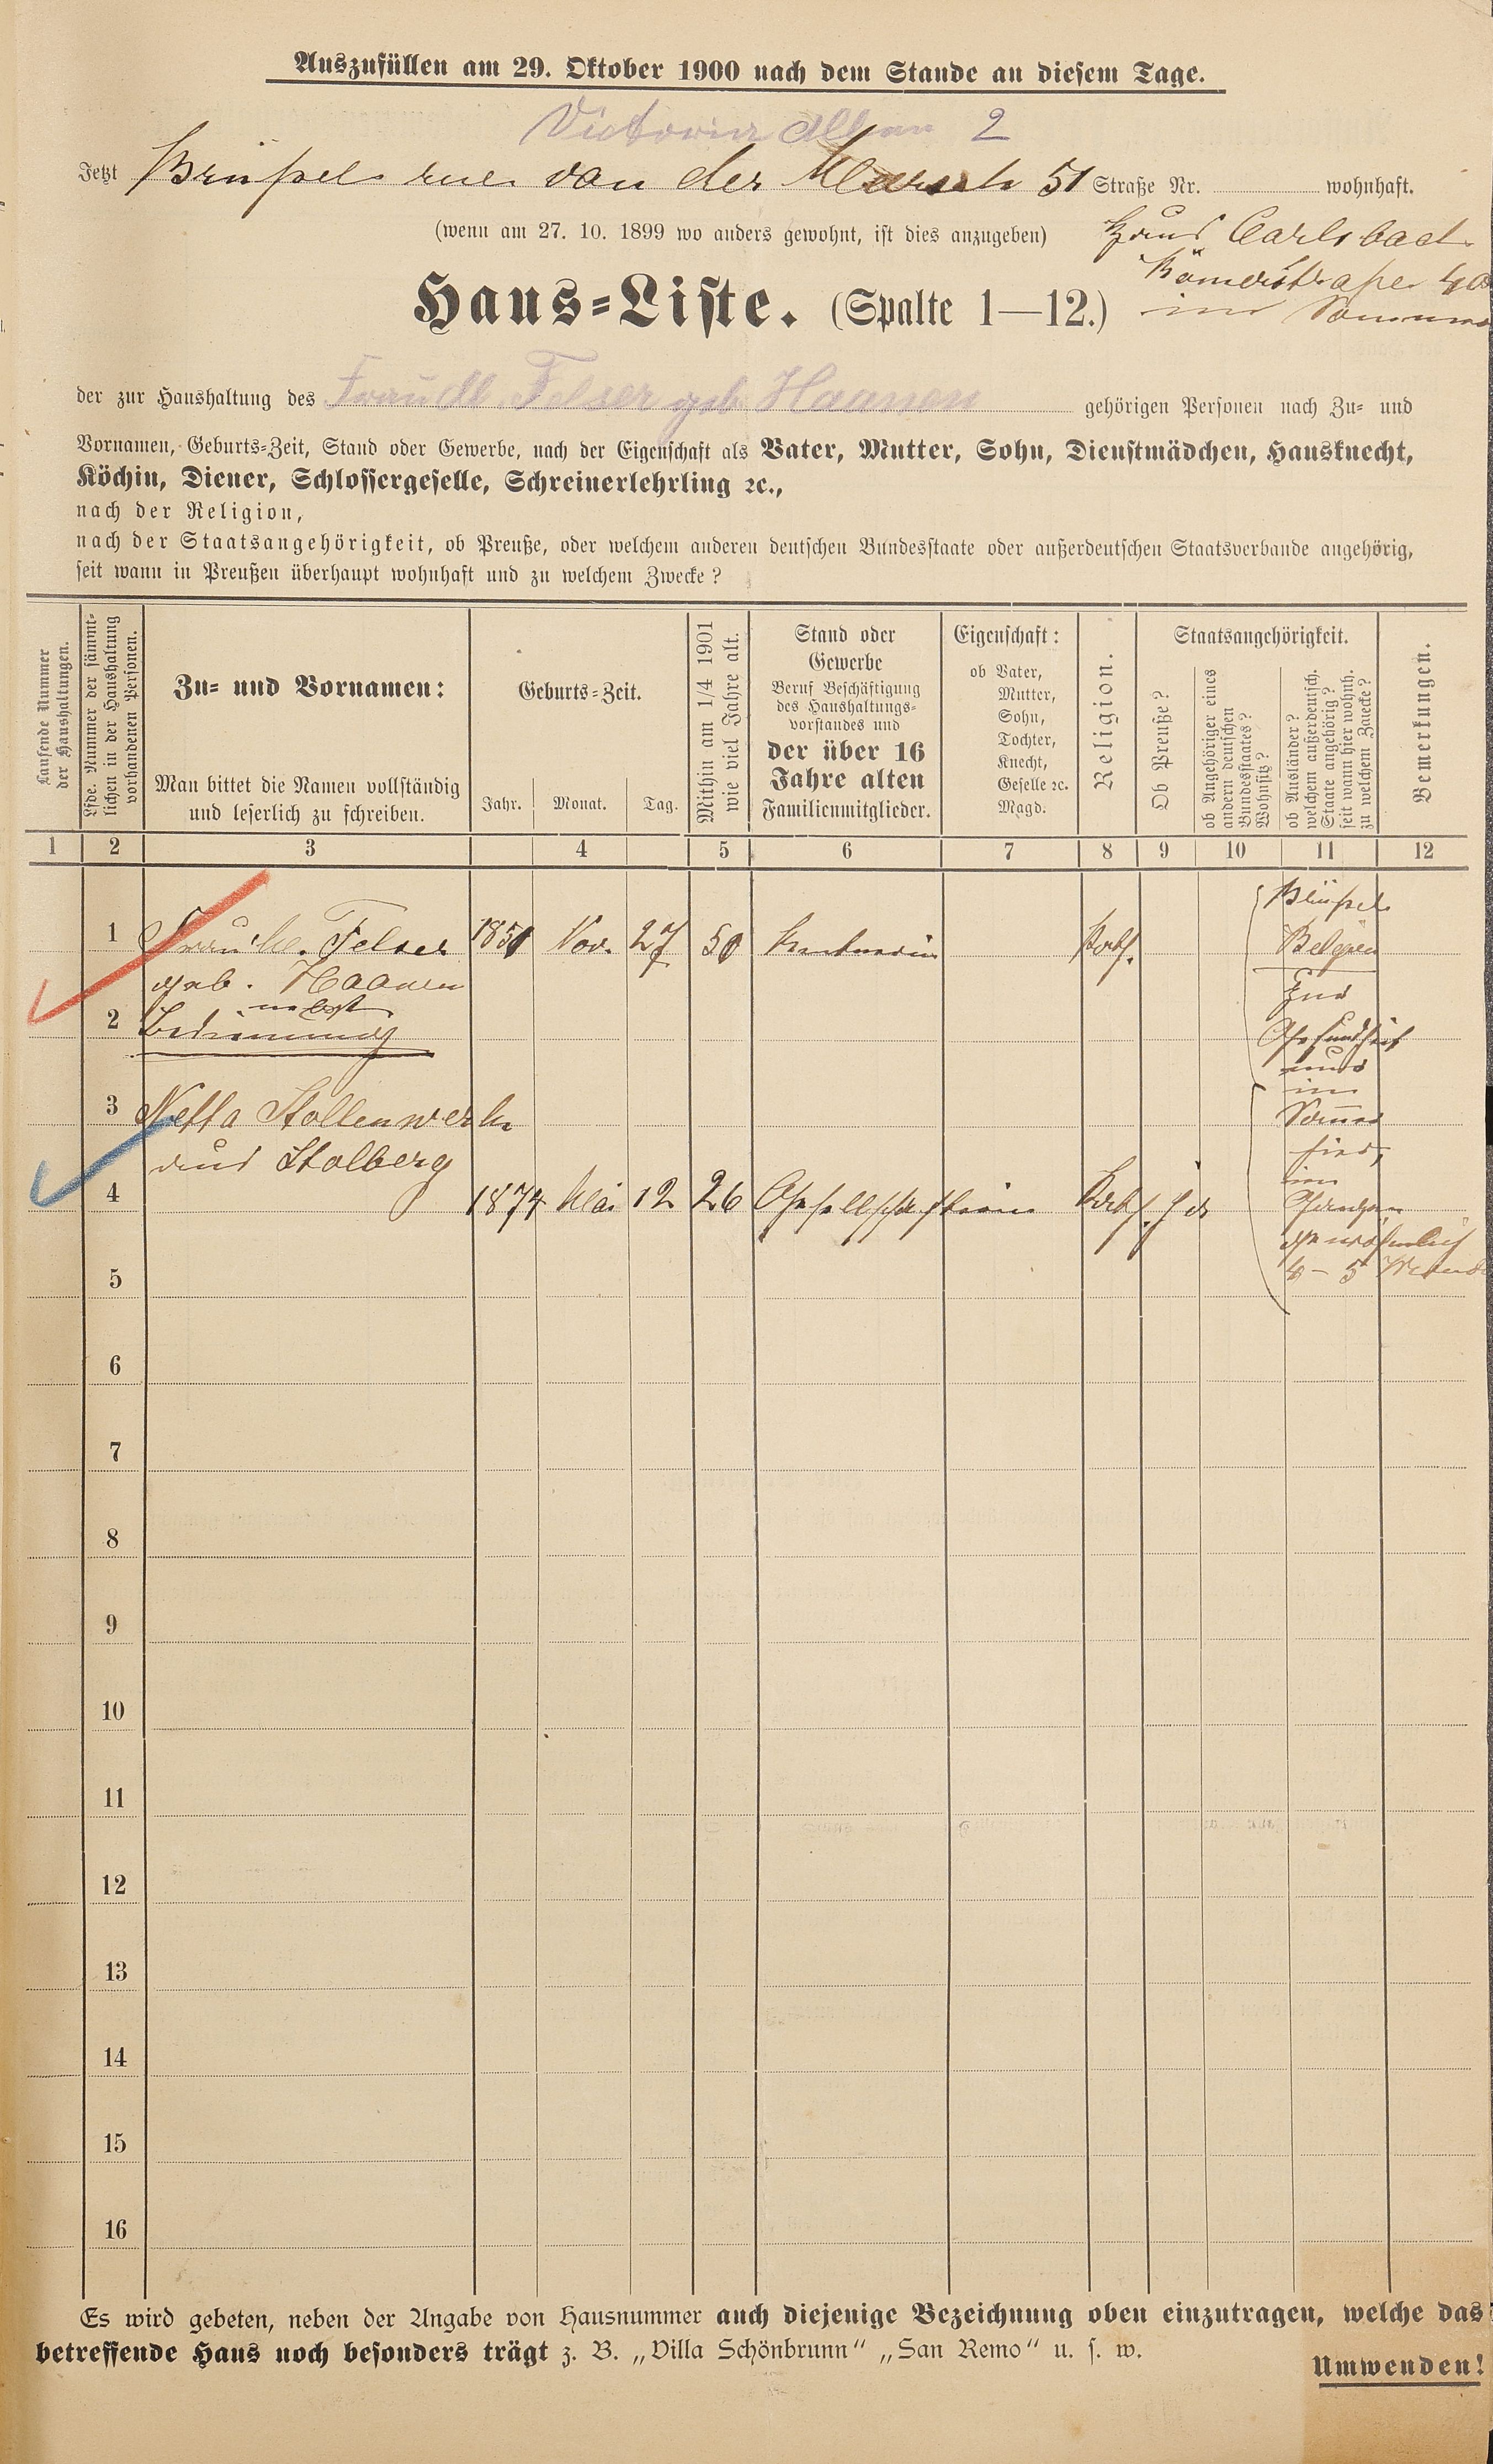 Auszufüllen am 29. Oktober 1900 nach dem Stande an diesem Tage.
Victoria Allee 2
Jetzt Brüssel rue van der 51 Straße Nr. wohnhaft.
(wenn am 27. 10. 1899 wo anders gewohnt, ist dies anzugeben) Haus Carlsbad
Römerstraße 40
Haus-Liste. (Spalte 1—12.) im Sommer
der zur Haushaltung des Frau Felser geb Haanen gehörigen Personen nach Zu- und
Vornamen, Geburts-Zeit, Stand oder Gewerbe, nach der Eigenschaft als Vater, Mutter, Sohn, Dienstmädchen, Hausknecht,
Köchin, Diener, Schlossergeselle, Schreinerlehrling ꝛc.,
nach der Religion,
nach der Staatsangehörigkeit, ob Preuße, oder welchem anderen deutschen Bundesstaate oder außerdeutschen Staatsverbande angehörig,
seit wann in Preußen überhaupt wohnhaft und zu welchem Zwecke?
Laufende Nummer
der Haushaltungen.
Lfde. Nummer der sämmt-
lichen in der Haushaltung
vorhandenen Personen.
Zu- und Vornamen:
Man bittet die Namen vollständig
und leserlich zu schreiben.
Geburts-Zeit.
Jahr. Monat. Tag.
Mithin am 1/4 1901
wie viel Jahre alt.
Stand oder
Gewerbe
Beruf Beschäftigung
des Haushaltungs-
vorstandes und
der über 16
Jahre alten
Familienmitglieder.
Eigenschaft:
ob Vater,
Mutter,
Sohn,
Tochter,
Knecht,
Geselle ꝛc.
Magd.
Religion.
Staatsangehörigkeit.
Ob Preuße?
ob Angehöriger eines
andern deutschen
Bundesstaates?
Wohnsitz?
ob Ausländer?
welchem außerdeutsch.
Staate angehörig?
seit wann hier wohnh.
zu welchem Zwecke?
Bemerkungen.
1 2 3 4 5 6 7 8 9 10 11 12
Brüssel
1 Frau Felser 1850 Nov. 27 50 Rentnerin kath. Belgien
geb. Haanen Zur
nebst
2 Bedienung Gesundheit
und
im
3 Netta Stollenwerk Sommer
aus Stolberg hier,
im
4 1874 Mai 12 26 Gesellschafterin kath. ja Ganzen
gewöhnlich
5 4 – 5 Monate
6
7
8
9
10
11
12
13
14
15
16
Es wird gebeten, neben der Angabe von Hausnummer auch diejenige Bezeichnung oben einzutragen, welche das
betreffende Haus noch besonders trägt z. B. „Villa Schönbrunn“ „San Remo“ u. s. w.
Umwenden!